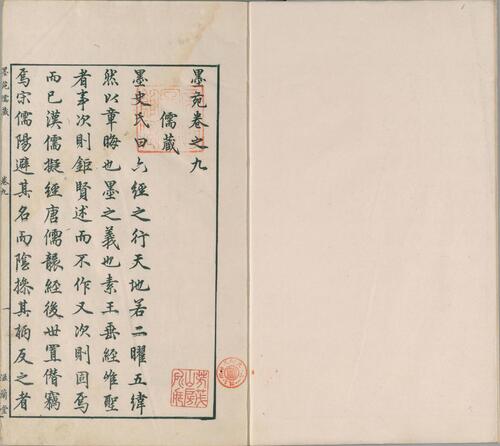 墨苑卷之九
儒藏
墨史氏曰六經之行天地若二曜五緯
然以章晦也墨之義也素王垂經惟聖
者事次則鉅賢述而不作又次則焉
而已漢儒擬經唐儒經後世置僭竊
焉宗儒陽避其名而陰操其柄反之者
墨苑儒藏
卷九
一
滋蘭堂